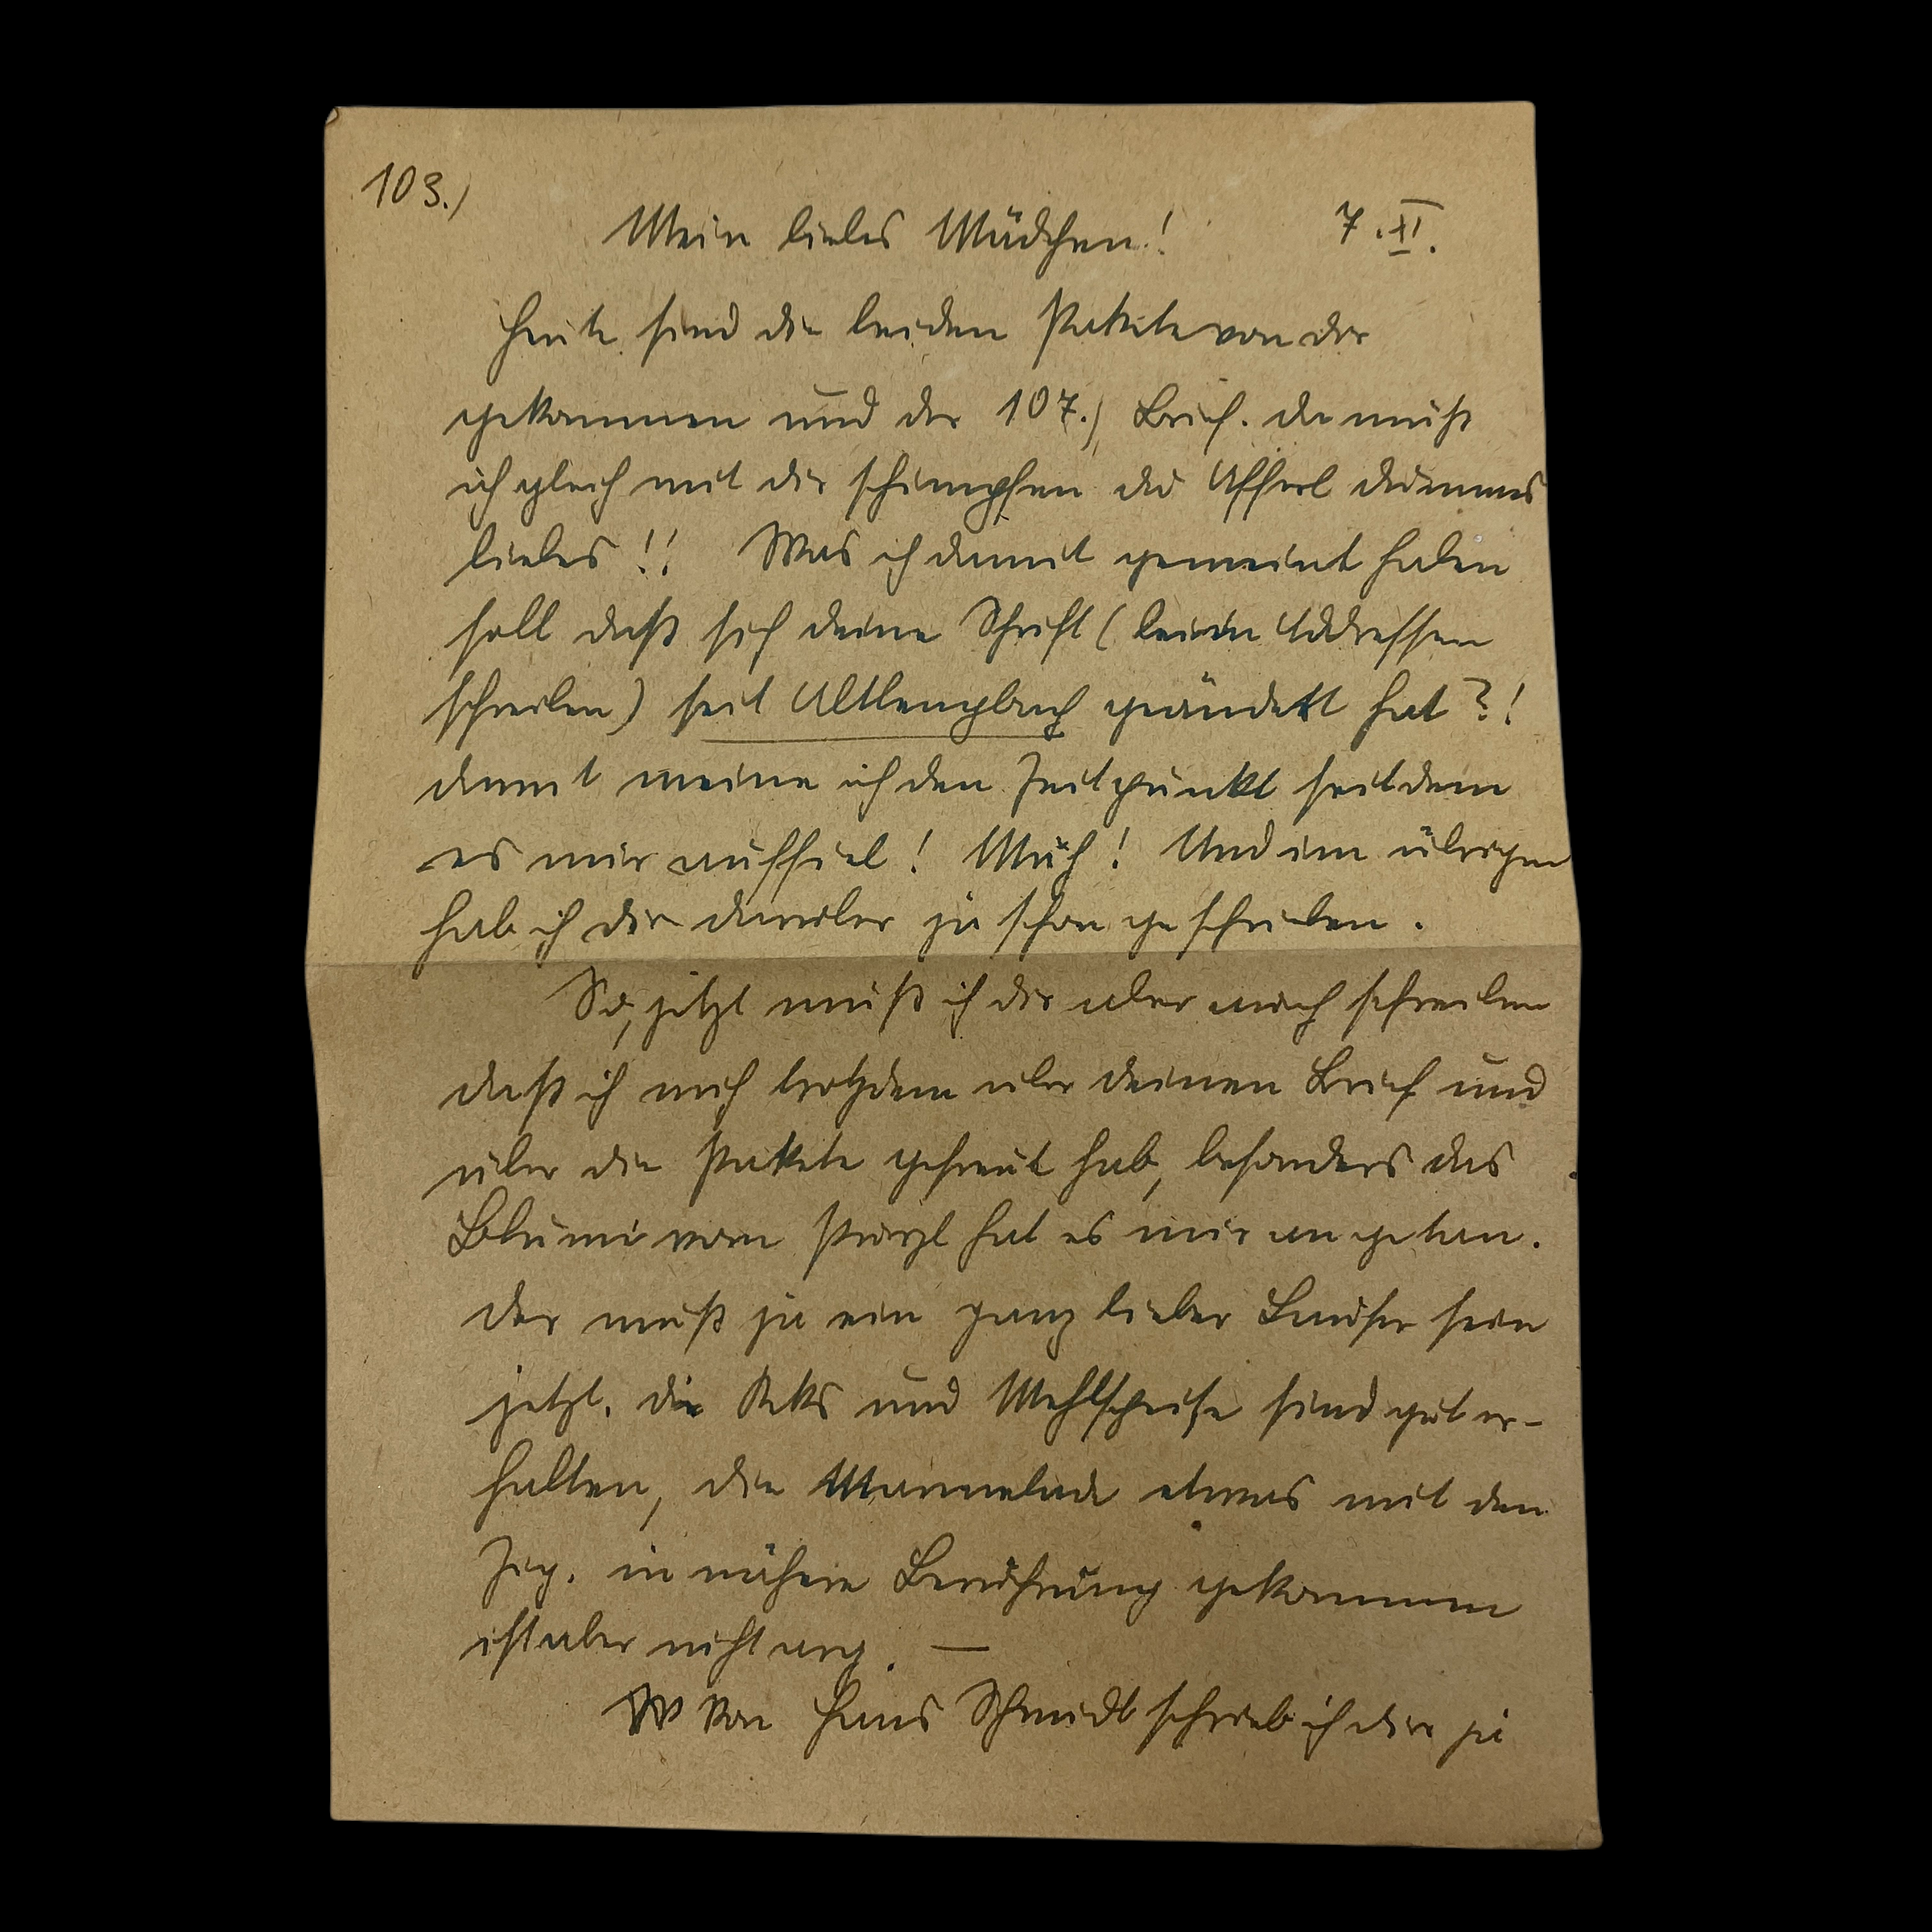 103.)
Mein liebes Mädchen! 7.XI.
Heute sind die beiden Pakete von dir
gekommen und der 107.) Brief. Da muß
ich gleich mit dir schimpfen du Afferl dummes
liebes!! Was ich damit gemeint haben
soll daß sich deine Schrift (beim Addressen
schreiben) seit Altlengbach geändert hat?!
damit meine ich den Zeitpunkt seitdem
es mir auffiel! Und im übrigen
hab ich dir darüber ja schon geschrieben.
So, jetzt muß ich dir aber auch schreiben
daß ich mich trotzdem über deinen Brief und
über die Pakete gefreut hab, besonders das
Blumi vom Purzl hat es mir angetan.
Der muß ja ein ganz lieber Lauser sein
jetzt. Die Keks und Mehlspeise sind gut er-
halten, die Marmelade etwas mit den
Zig. in nähere Berührung gekommen
ist aber nicht arg. —
Von Hans Schmidt schrieb ich dir ja